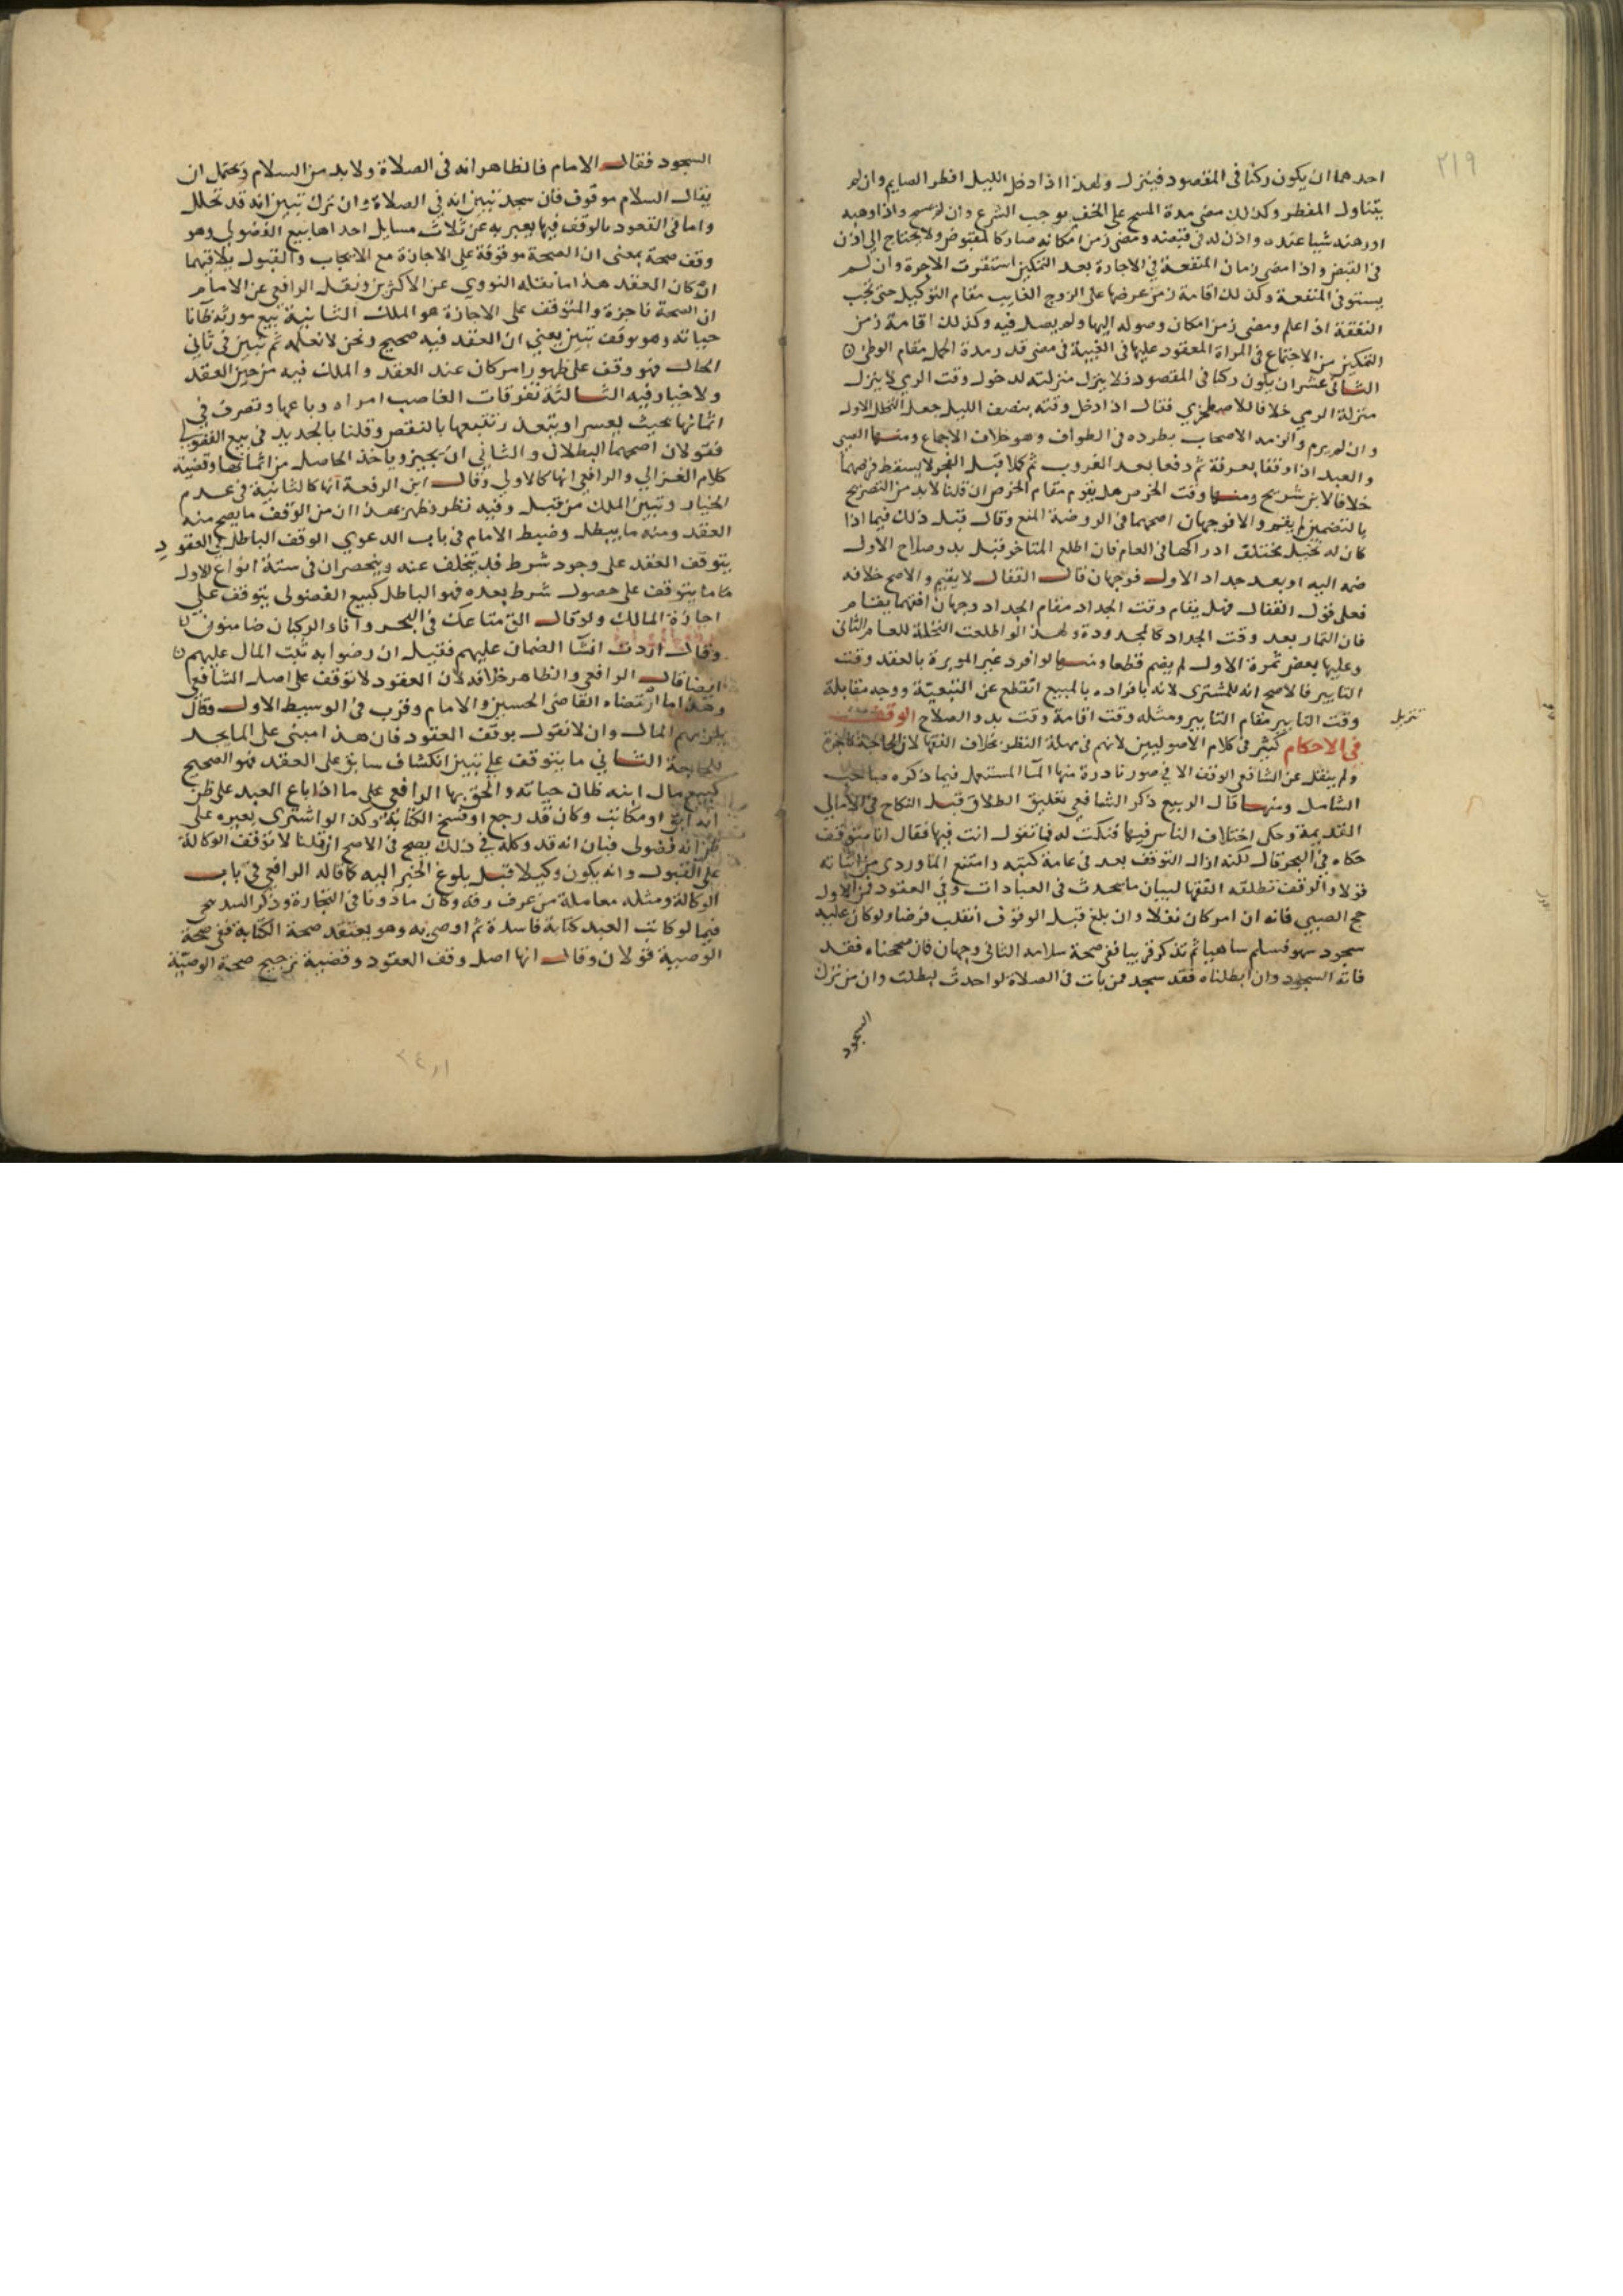 ٢١٩
احدهما ان يكون ركنا في المقصود فينزل ولهذا اذا دخل الليل افطر الصايم وان لم
يتناول المفطر وكذلك مضى مدة المسح على الخف يوجب الشرع وان لم يمسح واذا وهبه
او رهنه شيا عنده واذن له في قبضه ومضى زمن امكانه صار كالمقبوض ولا يحتاج الى اذن
في القبض واذا مضى زمان المنفعة في الاجارة بعد التمكين استقرت الاجرة وان لم
يستوف المنفعة وكذلك اقامة زمن عرضها على الزوج الغايب مقام التوكيل حتى تجب
النفقة اذا علم ومضى زمن امكان وصوله اليها ولم يصل فيه وكذلك اقامة زمن
التمكين من الاجتماع في المراة المعقود عليها في الغيبة في مضى قدر مدة الحمل مقام الوطئ
الثاني عشر ان يكون ركنا في المقصود فلا ينزل منزلته لدخول وقت الرمي لا ينزل
منزلة الرمي خلافا للاصطخري فقال اذا دخل وقته بنصف الليل جعل التحلل الاول
وان لم يرم والزمه الاصحاب بطرده في الطواف وهو خلاف الاجماع ومنها الصبي
والعبد اذا وقفا بعرفة ثم دفعا بعد الغروب ثم كملا قبل الفجر لا يسقط فرضهما
خلافا لابن شريح ومنها وقت الخرص هل يقوم مقام الخرص ان قلنا لا بد من التصريح
بالتضمين لم يقم والا فوجهان اصحهما في الروضة المنع وقال قبل ذلك فيما اذا
كان له نخيل يختلف ادراكها في العام فان اطلع المتاخر قبل بدو صلاح الاول
ضمه اليه او بعد جداد الاول فوجهان قال القفال لا يقيم والاصح خلافه
فعلى قول القفال فهل يقام وقت الجداد مقام الجداد وجهان افقههما يقام
فان الثمار بعد وقت الجداد كالمجدودة ولهذا لو اطلعت النخلة للعام الثاني
وعليها بعض ثمرة الاول لم يضم قطعا ومنها لو افرد غير الموبرة بالعقد وقت
التابير فالاصح انه للمشتري لانه بافراده بالمبيع انقطع عن التبعية ووجه مقابله
تنزيل
وقت التابير مقام التابير ومثله وقت اقامة وقت بدو الصلاح الوقف
في الاحكام كثير في كلام الاصوليين لانهم في مهلة النظر بخلاف الفقها لان الحاجة ناجزة
ولم ينقل عن الشافعي الوقف الا في صور نادرة منها الما المستعمل فيما ذكره صاحب
الشامل ومنها قال الربيع ذكر الشافعي تعليق الطلاق قبل النكاح في الامالي
القديمة وحكى اختلاف الناس فيها فنكت له فما تقول انت فيها فقال انا متوقف
حكاه في البحر قال لكنه ازال التوقف بعد في عامة كتبه وامتنع الماوردي من اثباته
قولا والوقف تطلقه الفقها لبيان ما يحدث في العبادات وفي العقود فمن الاول
حج الصبي فانه ان امر كان نفلا وان بلغ قبل الوقوف انقلب فرضا ولو كان عليه
سجود سهو فسلم ساهيا ثم تذكر قريبا ففي صحة سلامه الثاني وجهان فان صححناه فقد
فاته السجود وان ابطلناه فقد سجد فمن بات في الصلاة لو احدث لبطلت وان من ترك
السجود
السجود فقال الامام فالظاهر انه في الصلاة ولا بد من السلام ويحتمل ان
يقال السلام موقوف فان سجد تبين انه في الصلاة وان ترك تبين انه قد تحلل
واما في العقود بالوقف فيها يعبر به عن ثلاث مسايل احداها بيع الفضولي وهو
وقف صحة بمعنى ان الصحة موقوفة على الاجازة مع الايجاب والقبول يلاقيهما
ان كان العقد هذا ما نقله النووي عن الاكثرين ونقل الرافعي عن الامام
ان الصحة ناجزة والمتوقف على الاجازة هو الملك الثانية بيع مورثه ظانا
حياته وهو يوقف تبين يعني ان العقد فيه صحيح ونحن لا نعلمه ثم تبين في ثاني
الحال فهو وقف على ظهور امر كان عند العقد والملك فيه من حين العقد
ولا خيار فيه الثالثة تفرقات الغاصب امواله وباعها وتصرف في
اثمانها بحيث يعسر او يتعذر تتبعها بالنقص وقلنا بالجديد في بيع الفضولي
فقولان اصحهما البطلان والثاني ان يجيز وياخذ الحاصل من اثمانها وقضية
كلام الغزالي والرافعي انها كالاولى وقال ابن الرفعة انها كالثانية في عدم
الخيار وتبين الملك من قبل وفيه نظر وظهر بهذا ان من الوقف ما يصح منه
العقد ومنه ما يبطل وضبط الامام في باب الدعوي الوقف الباطل في العقود
يتوقف العقد على وجود شرط قد يتخلف عنه وينحصران في ستة انواع الاول
ما يتوقف على حصول شرط بعده فهو الباطل كبيع الفضولي يتوقف على
اجازة المالك ولو قال الق متاعك في البحر وانا والركبان ضامنون
وقال اردت انشا الضمان عليهم فقيل ان رضوا به ثبت المال عليهم
ايضا قال الرافعي والظاهر خلافه لان العقود لا توقف على اصل الشافعي
وهذا ما ارتضاه القاضي الحسين والامام وقرب في الوسيط الاول وقال
يلزمهم المال وان لا نقول بوقف العقود فان هذا مبني على المايجد
للحاجة الثاني ما يتوقف على تبين انكشاف سابق على العقد فهو الصحيح
كبيع مال ابنه ظان حياته والحق بها الرافعي على ما اذا باع العبد على ظن
انه ابق او مكاتب وكان قد رجع او فسخ الكتابة وكذا لو اشترى لغيره على
ظن انه فضولي فبان انه قد وكله في ذلك يصح في الاصح ان قلنا لا توقف الوكالة
على القبول وانه يكون وكيلا قبل بلوغ الخبر اليه كما قاله الرافعي في باب
الوكالة ومثله معاملة من عرف رقه وكان ماذونا في التجارة وذكر السرخسي
فيما لو كاتب العبد كتابة فاسدة ثم اوصى به وهو يعتقد صحة الكتابة ففي صحة
الوصية قولان وقال انها اصل وقف العقود وقضية ترجيح صحة الوصية